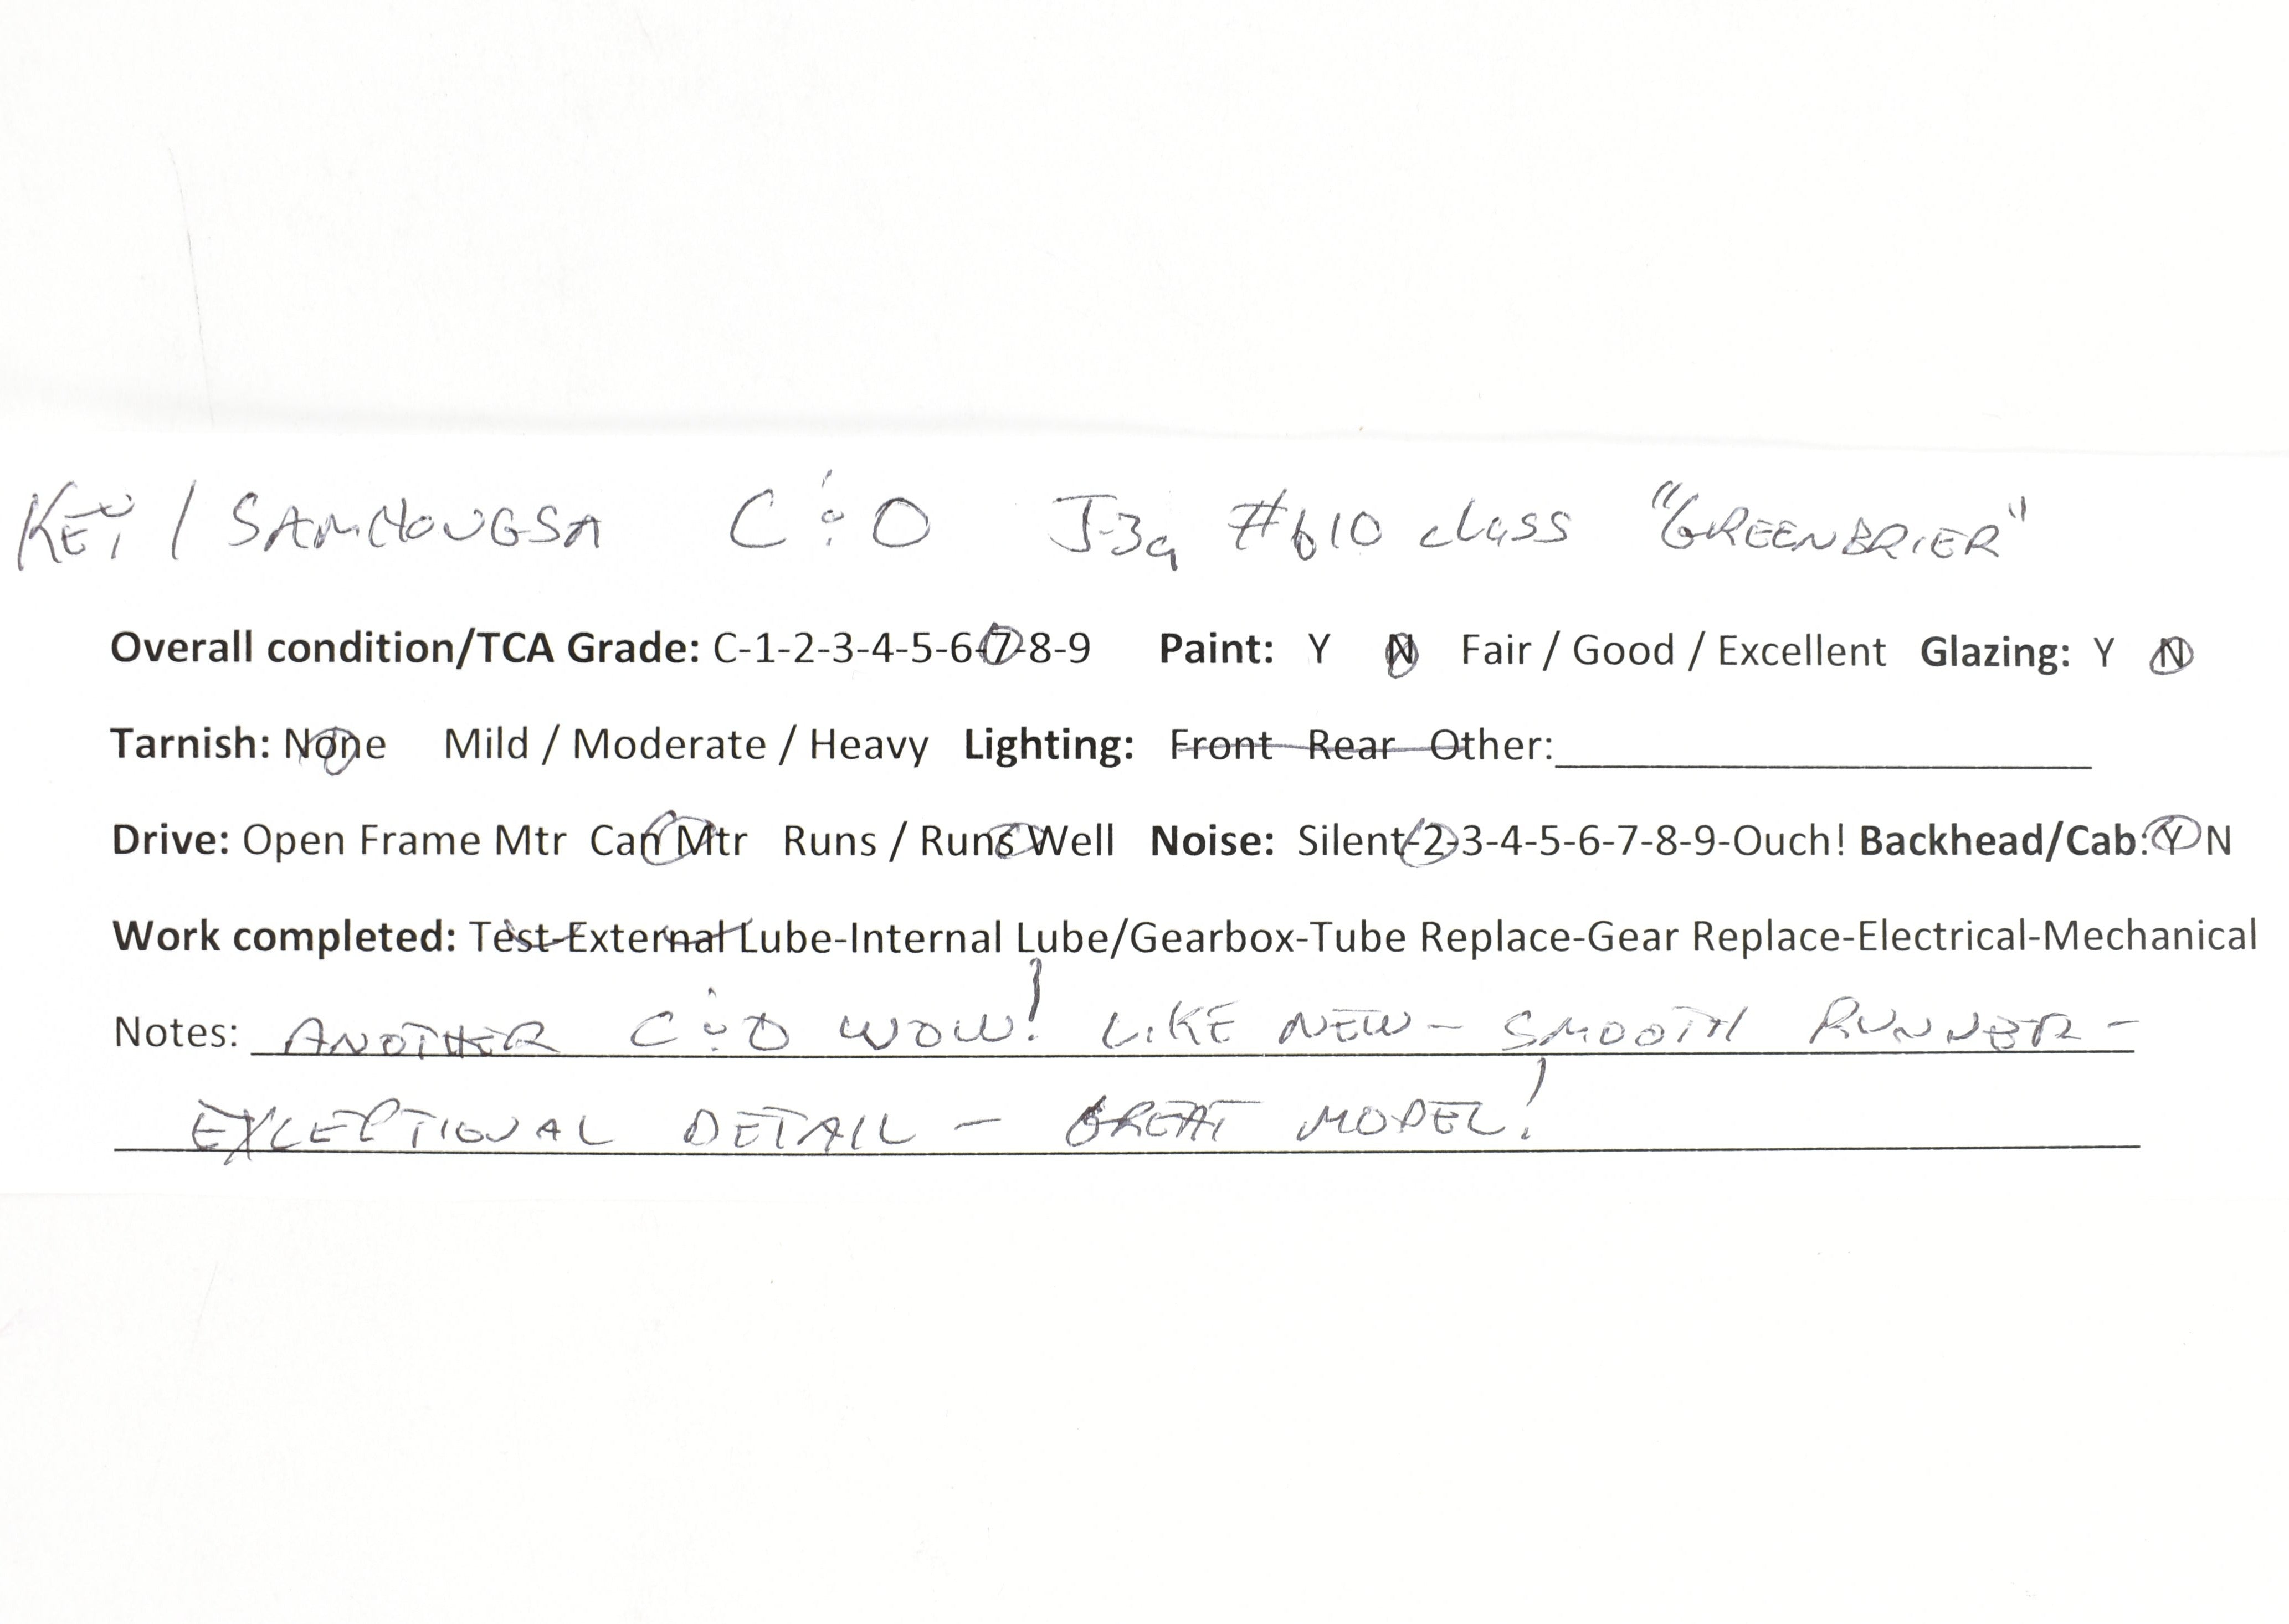 KEY / SAMHOUGSA C & O J-3a #610 class "GREENBRIER"
Overall condition/TCA Grade: C-1-2-3-4-5-6-7-8-9 Paint: Y N Fair / Good / Excellent Glazing: Y N
Tarnish: None Mild / Moderate / Heavy Lighting: Front Rear Other:
Drive: Open Frame Mtr Can Mtr Runs / Runs Well Noise: Silent-2-3-4-5-6-7-8-9-Ouch! Backhead/Cab: Y N
Work completed: Test-External Lube-Internal Lube/Gearbox-Tube Replace-Gear Replace-Electrical-Mechanical
Notes: ANOTHER C & O WOW! LIKE NEW - SMOOTH RUNNER -
EXCEPTIONAL DETAIL - GREAT MODEL!